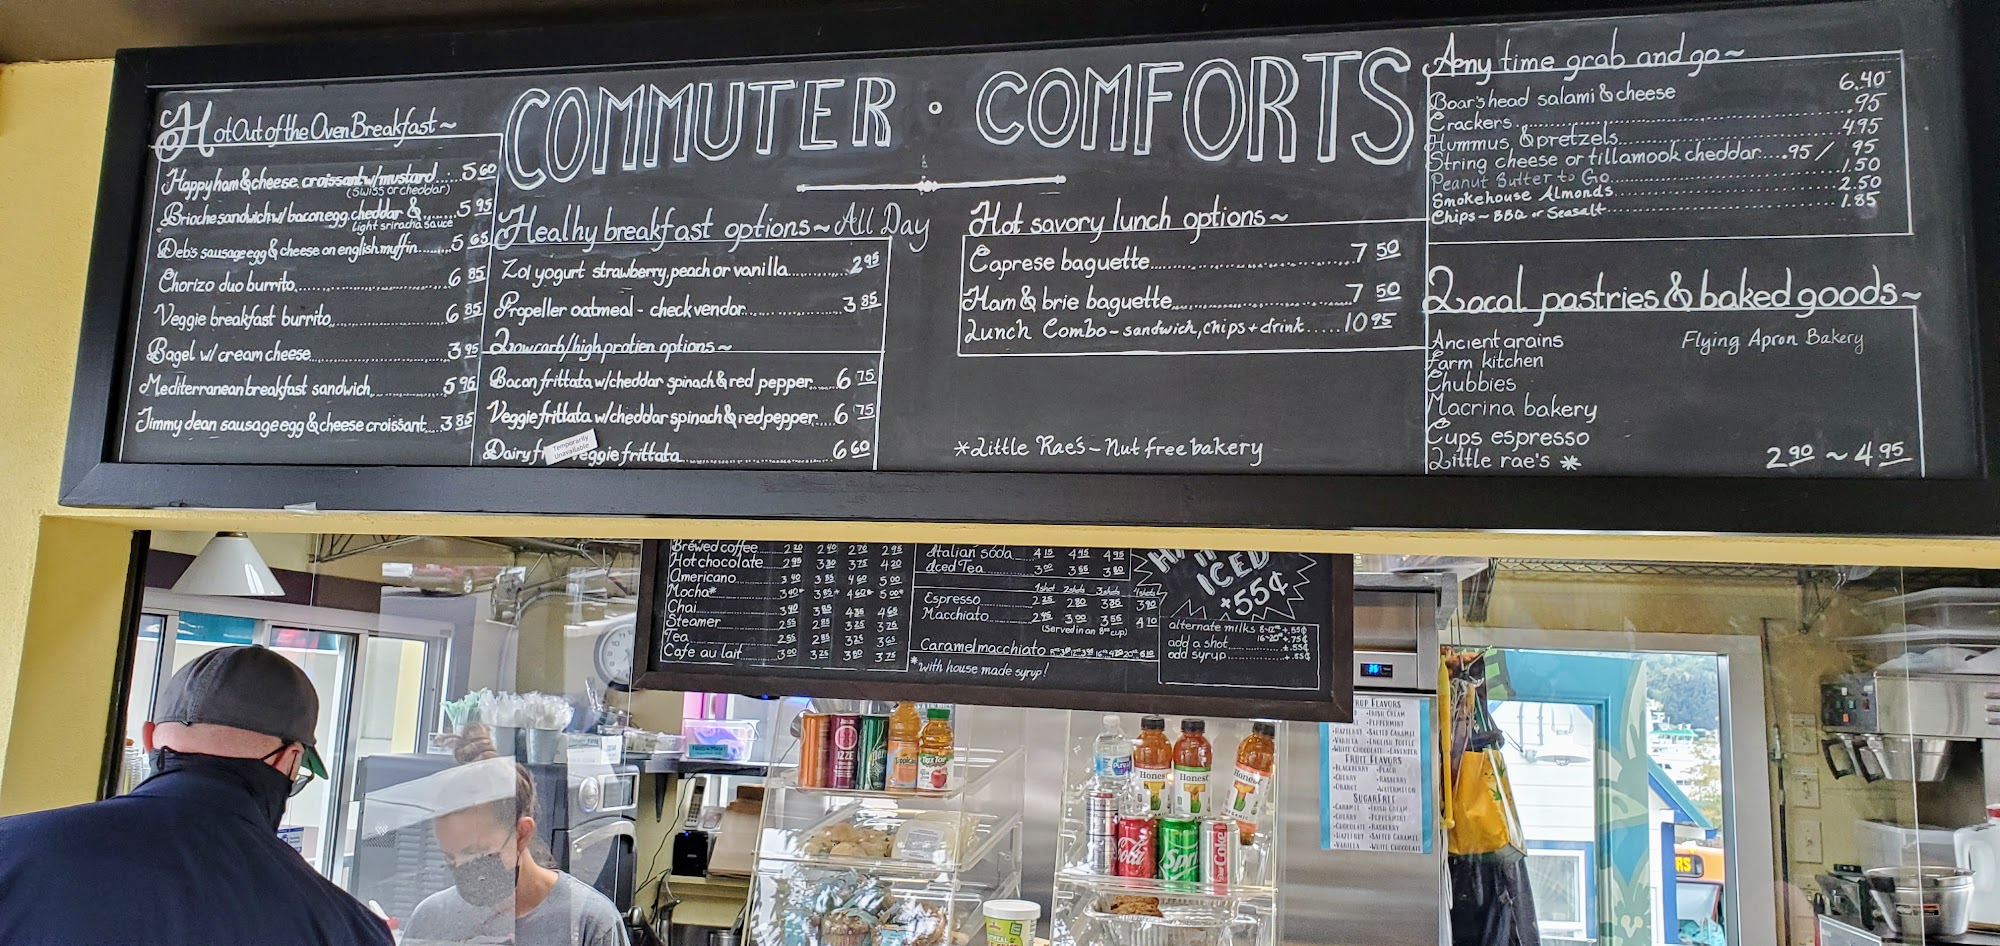 COMMUTER • COMFORTS
Hot Out of the Oven Breakfast~
Happy ham & cheese croissant w/ mustard.....5 60
(SWISS or cheddar)
Brioche sandwich w/ bacon egg, cheddar &.......5 95
light sriracha sauce
Deb's sausage egg & cheese on english muffin.....5 65
Chorizo duo burrito..........6 85
Veggie breakfast burrito..........6 85
Bagel w/ cream cheese..........3 95
Mediterranean breakfast sandwich..........5 95
Jimmy dean sausage egg & cheese croissant....3 85
Healhy breakfast options~All Day
Zoi yogurt strawberry, peach or vanilla..........2 95
Propeller oatmeal - check vendor..........3 85
Low carb/high protien options~
Bacon frittata w/cheddar spinach & red pepper.....6 75
Veggie frittata w/cheddar spinach & red pepper.....6 75
Temporarily
Unavailable
Dairy veggie frittata..........6 60
Hot savory lunch options~
Caprese baguette..........7 50
Ham & brie baguette..........7 50
Lunch Combo - sandwich, chips + drink.....10 95
*Little Rae's - Nut free bakery
Any time grab and go~
Boar's head salami & cheese 6.40
Crackers..........95
Hummus, & pretzels..........4.95
String cheese or tillamook cheddar.....95 / 95
Peanut Butter to Go..........1.50
Smokehouse Almonds..........2.50
Chips~ BBQ or Seasalt..........1.85
Local pastries & baked goods~
Ancient grains Flying Apron Bakery
Farm kitchen
Chubbies
Macrina bakery
Cups espresso
Little rae's * 2 90 ~ 4 95
Brewed coffee 2 20 2 40 2 70 2 95
Hot chocolate 2 95 3 30 3 75 4 20
Americano 3 40 3 85 4 60 5 00
Mocha* 3 40 3 85 4 60 5 00
Chai 3 40 3 85 4 35 4 65
Steamer 2 55 2 85 3 25 3 75
Tea 2 55 2 85 3 25 3 65
Cafe au lait 3 00 3 25 3 50 3 75
Italian soda 4 15 4 45 4 95
Iced Tea 3 00 3 55 3 80
1 shot 2 shots 3 shots 4 shots
Espresso 2 25 2 80 3 35 3 90
Macchiato 2 45 3 00 3 55 4 10
(Served in an 8oz cup)
Caramel macchiato
*with house made syrup!
ICED
+55¢
alternate milks 8-12oz +.55¢
16-20oz +.75¢
add a shot +.55¢
add syrup +.55¢
SYRUP FLAVORS
•IRISH CREAM
•PEPPERMINT
HAZELNUT •SALTED CARAMEL
•VANILLA •ENGLISH TOFFEE
•WHITE CHOCOLATE •LAVENDER
FRUIT FLAVORS
•BLACKBERRY •PEACH
•CHERRY •RASBERRY
•ORANGE •WATERMELON
SUGARFREE
•CARAMEL •IRISH CREAM
•CHERRY •PEPPERMINT
•CHOCOLATE •RASBERRY
•HAZELNUT •SALTED CARAMEL
•VANILLA •WHITE CHOCOLATE
IZZE
Tropicana
Tree Top
Honest
Honest
Honest
Coca
Sprite
Diet Coke
OATMEAL
RS